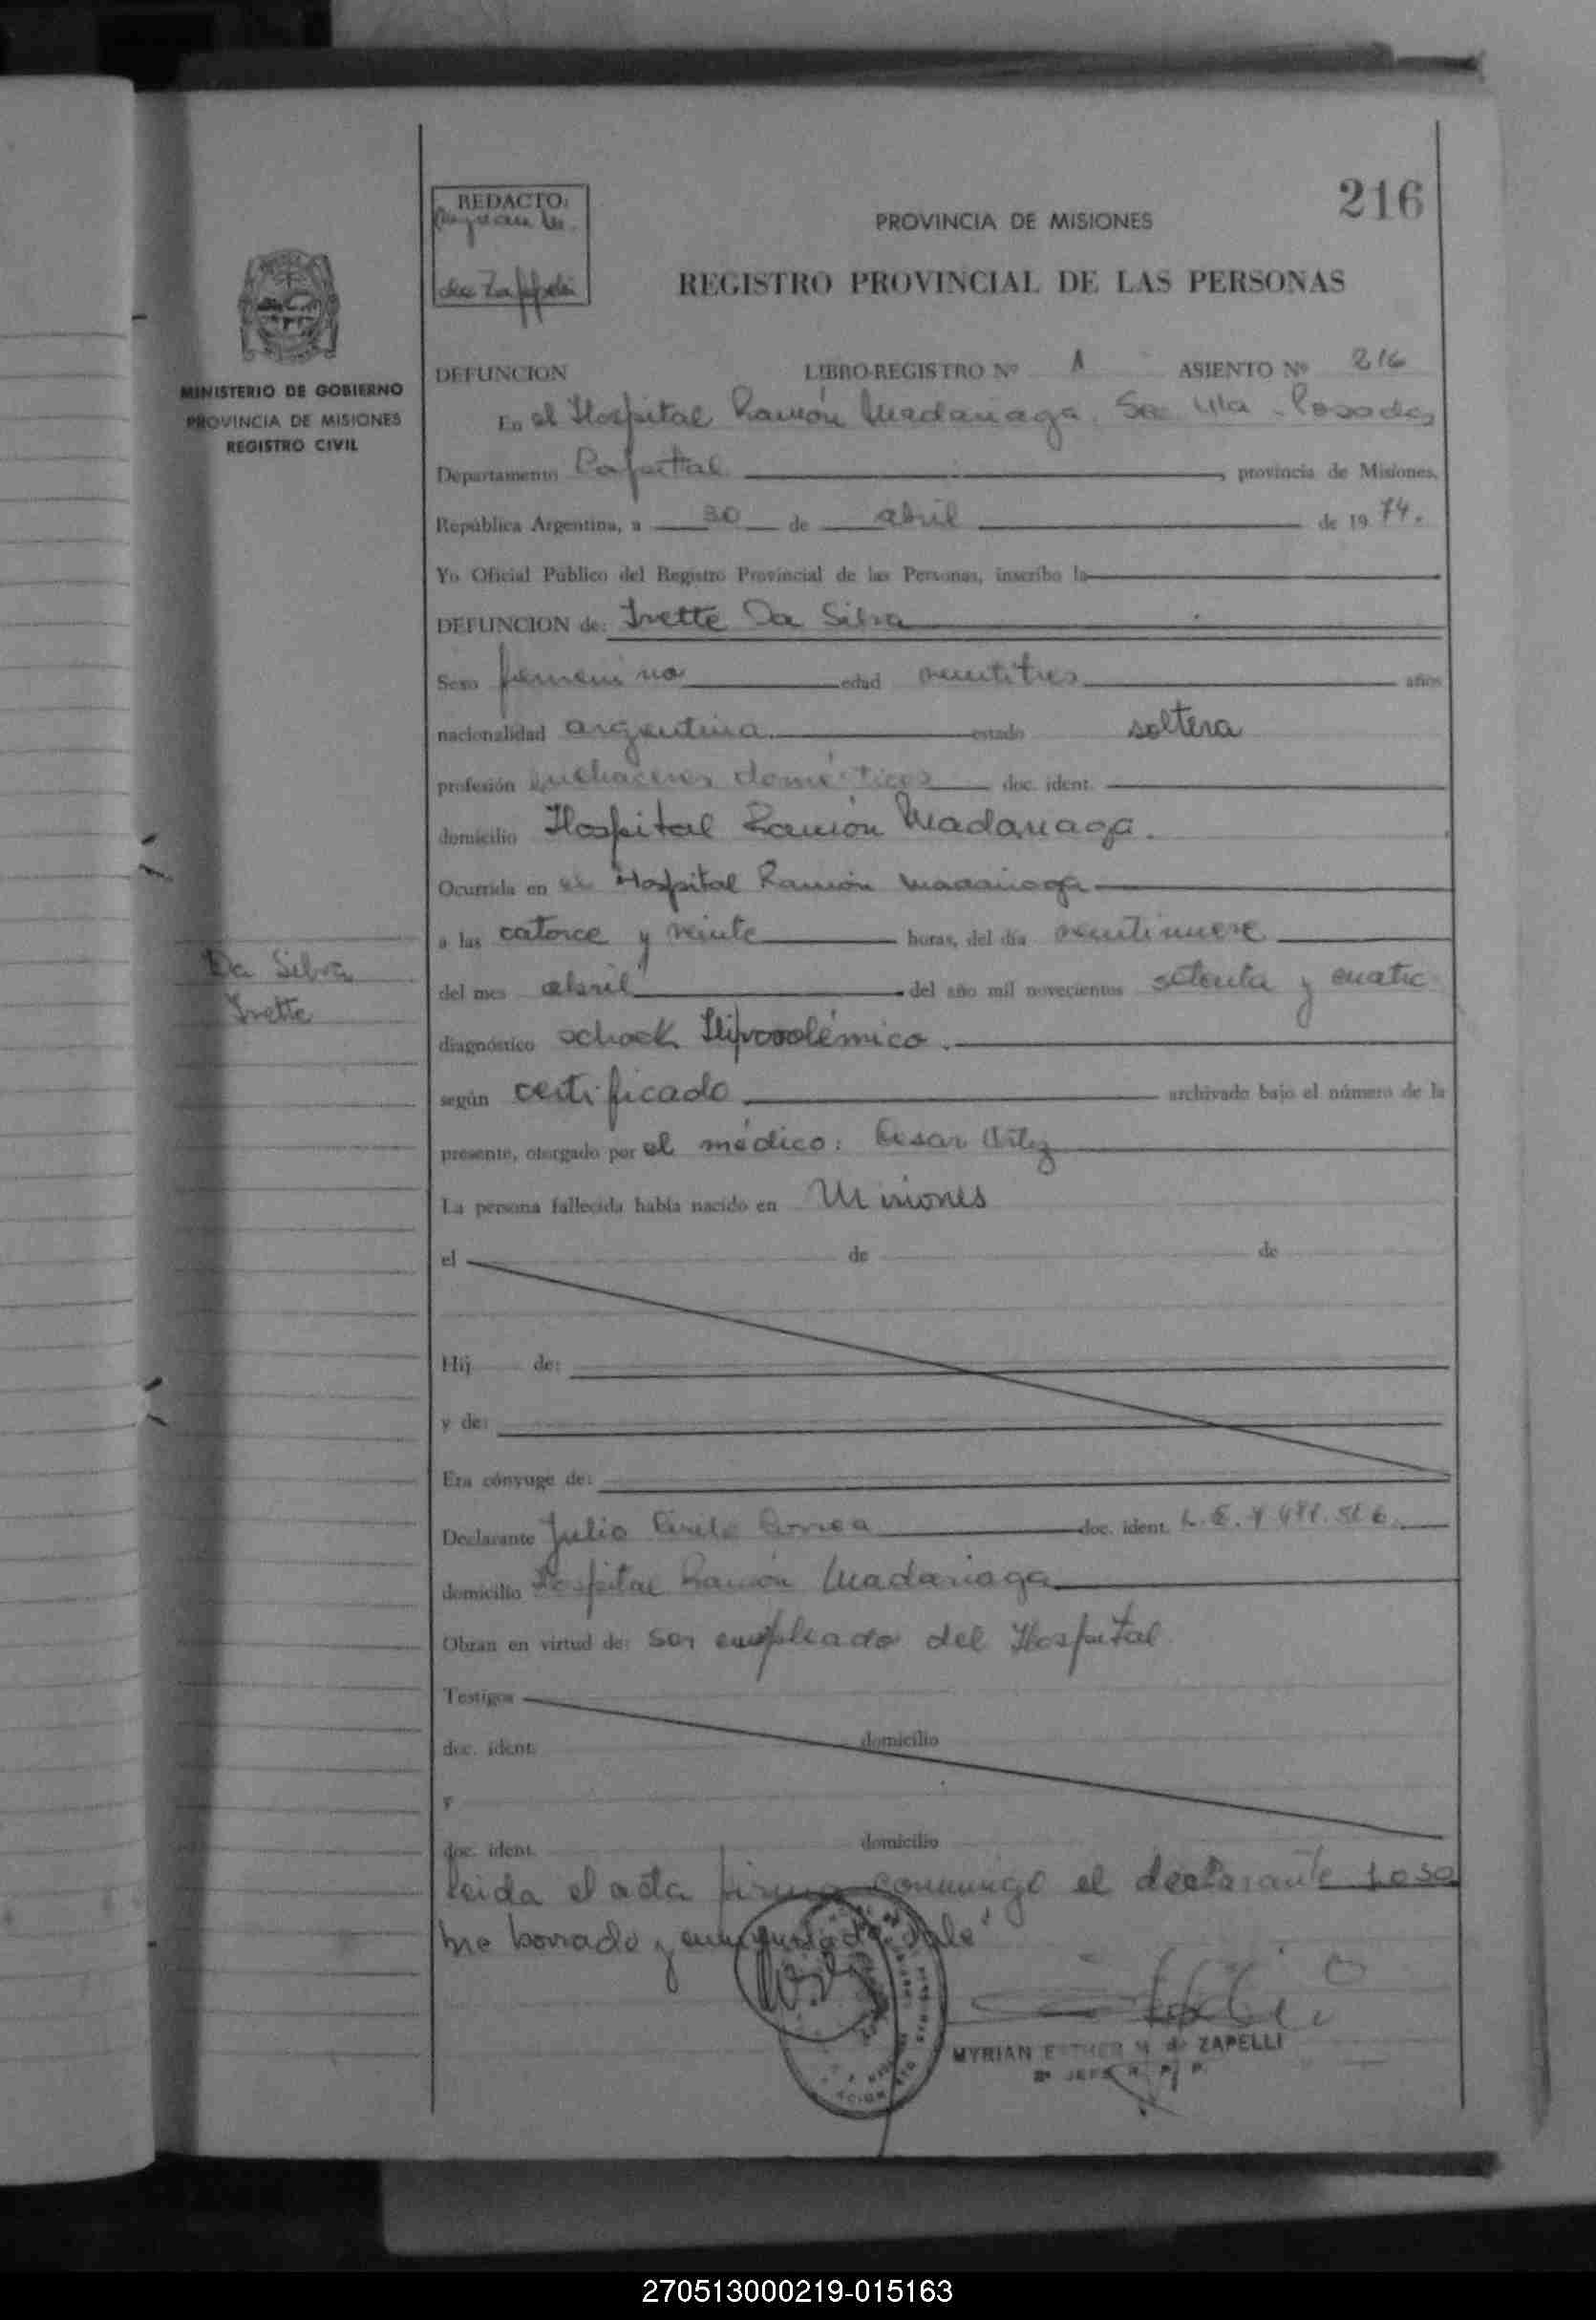 216
REDACTO:
de Zappeli
PROVINCIA DE MISIONES
REGISTRO PROVINCIAL DE LAS PERSONAS
MINISTERIO DE GOBIERNO
PROVINCIA DE MISIONES
REGISTRO CIVIL
DEFUNCION LIBRO-REGISTRO Nº 1 ASIENTO Nº 216
En el Hospital Ramón Madariaga, Posadas
Departamento Capital, provincia de Misiones,
República Argentina, a 30 de abril de 1974.
Yo Oficial Público del Registro Provincial de las Personas, inscribo la
DEFUNCION de: Ivette Da Silva
Sexo femenino edad veintitres años
nacionalidad argentina estado soltera
profesión quehaceres domésticos doc. ident.
domicilio Hospital Ramón Madariaga.
Ocurrida en el Hospital Ramón Madariaga
a las catorce y veinte horas, del día veintinueve
Da Silva
Ivette
del mes abril del año mil novecientos setenta y cuatro
diagnóstico schock Hipovolémico.
según certificado archivado bajo el número de la
presente, otorgado por el médico: Cesar Ortiz
La persona fallecida había nacido en Misiones
el de de
Hij de:
y de:
Era cónyuge de:
Declarante Julio Correa doc. ident. L.E.
domicilio Hospital Ramón Madariaga
Obran en virtud de: ser empleado del Hospital
Testigos
doc. ident. domicilio
y
doc. ident. domicilio
leida el acta firma conmigo el declarante
borrado y enmendado vale
MYRIAN ESTHER M. de ZAPELLI
2º JEFE R. P. P.
270513000219-015163